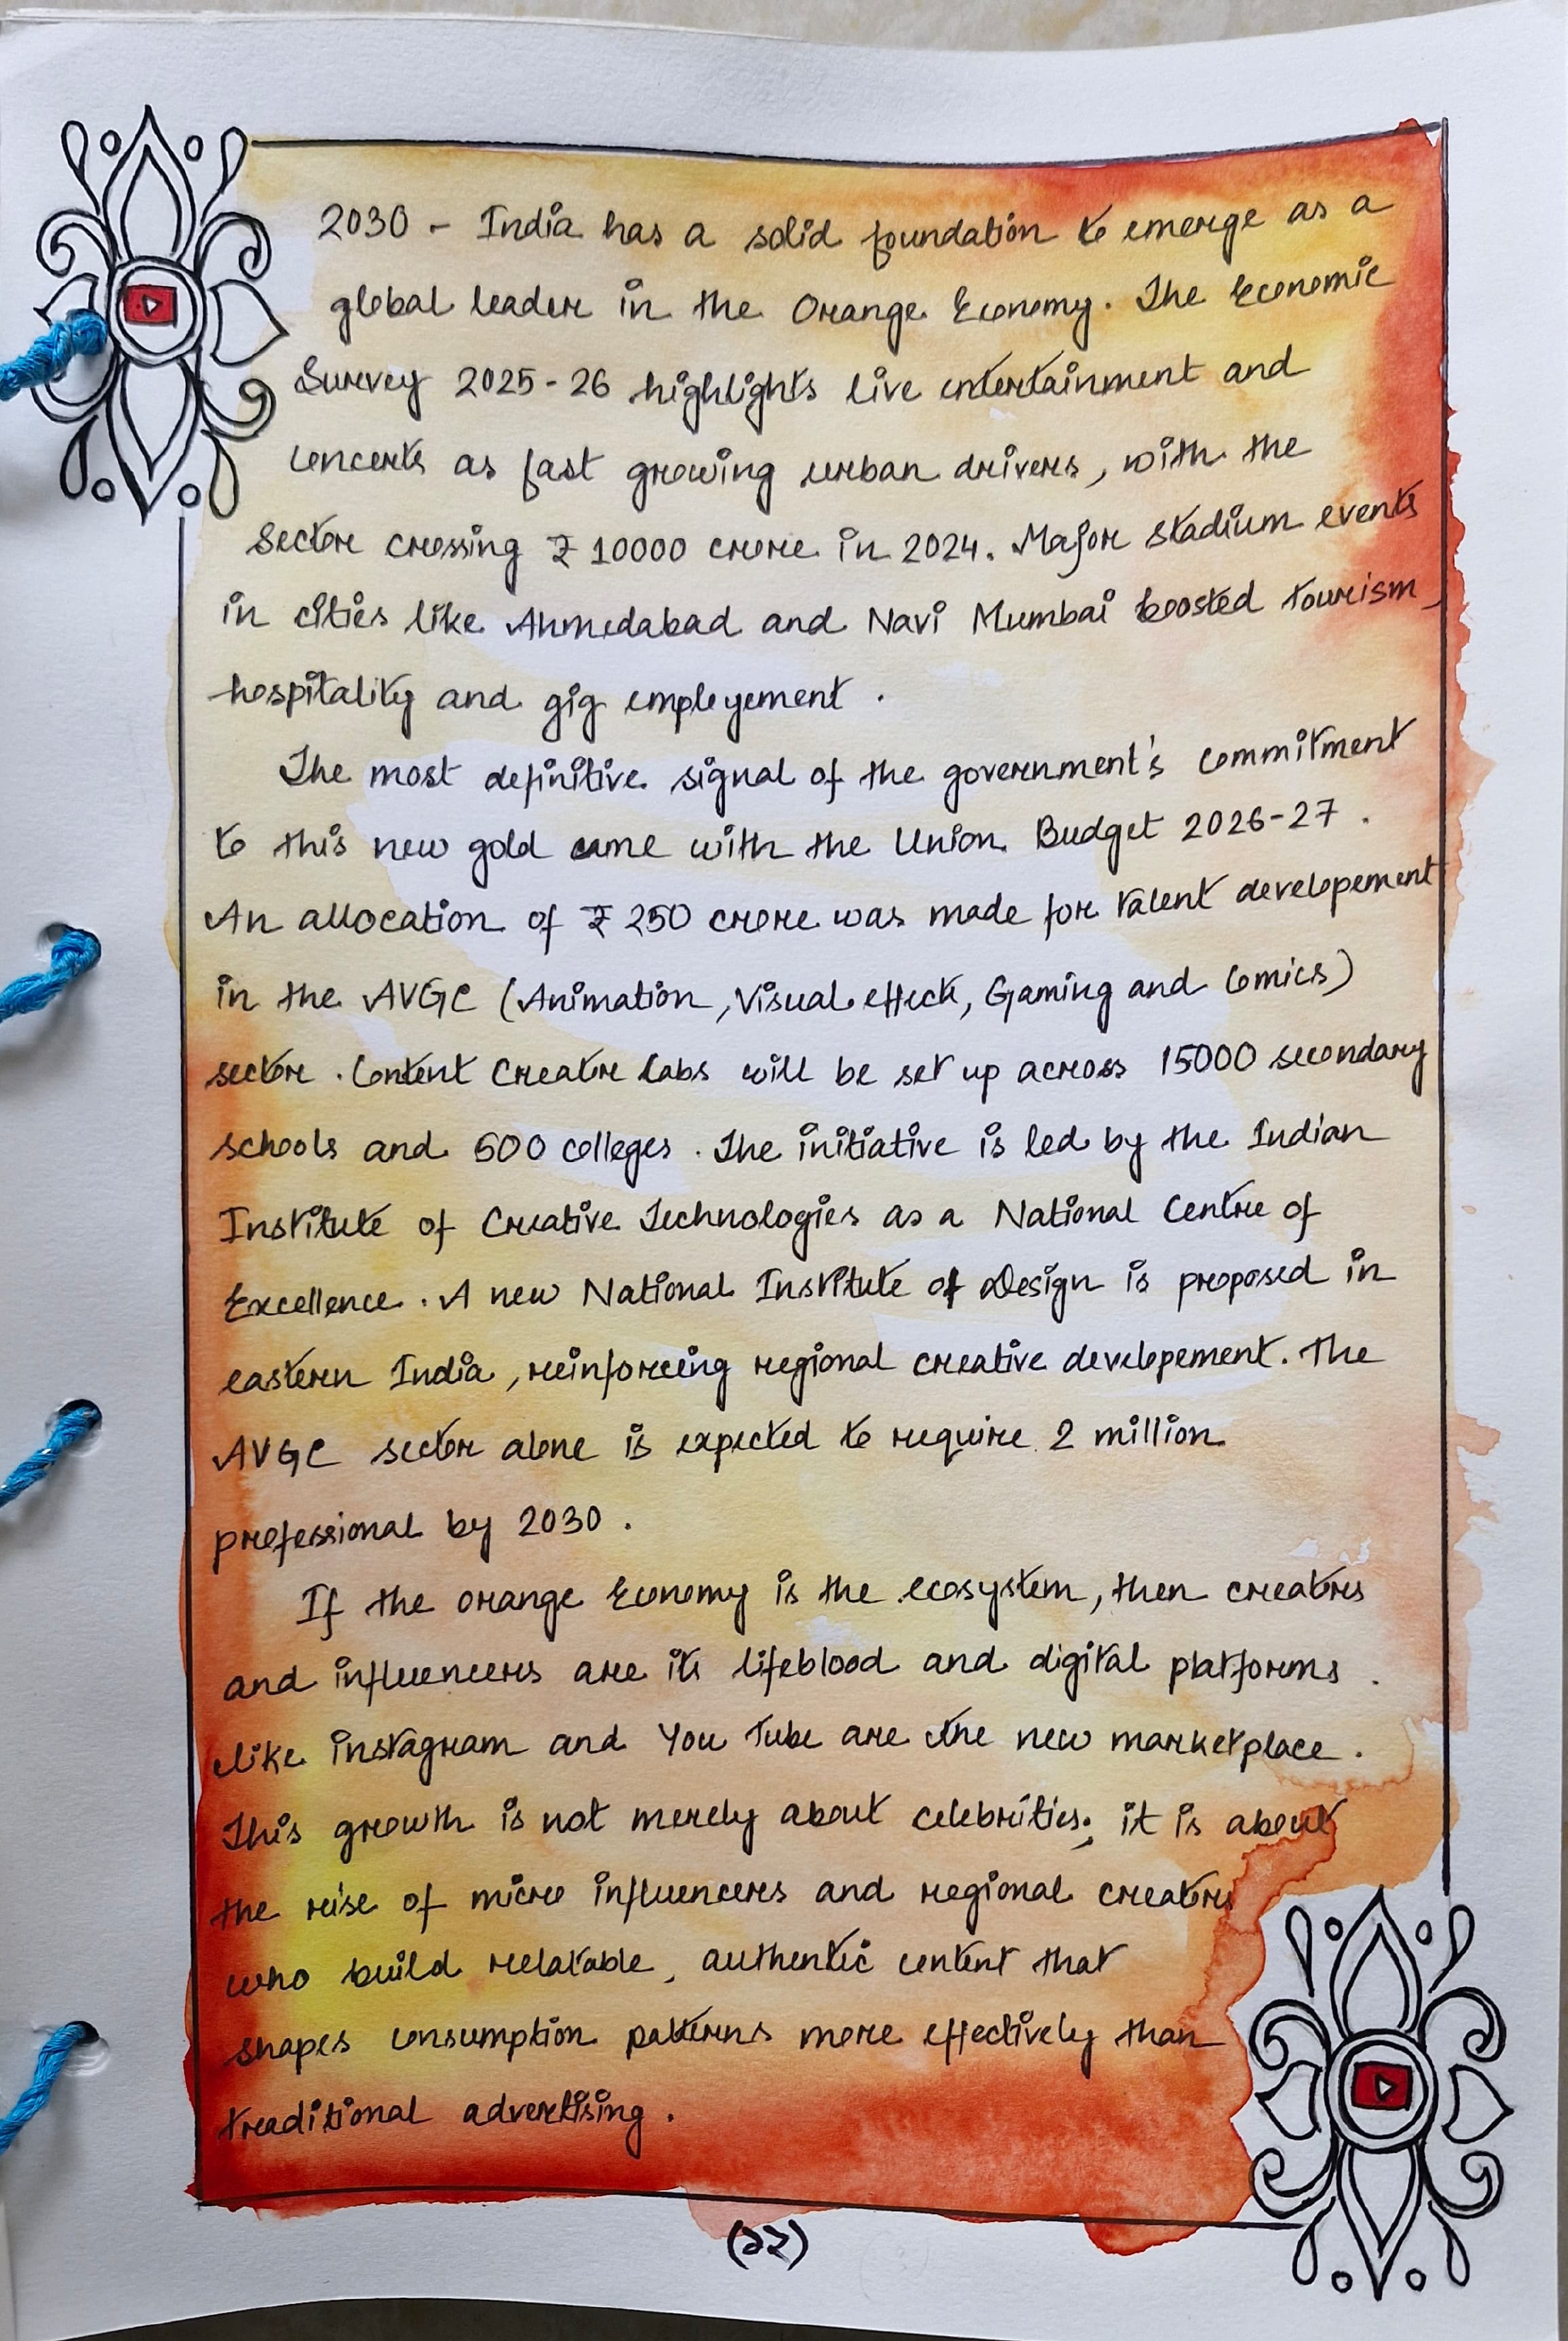 2030 - India has a solid foundation to emerge as a
global leader in the Orange Economy. The Economic
Survey 2025-26 highlights live entertainment and
concerts as fast growing urban drivers, with the
sector crossing ₹ 10000 crore in 2024. Major stadium events
in cities like Ahmedabad and Navi Mumbai boosted tourism,
hospitality and gig employement.
The most definitive signal of the government's commitment
to this new gold came with the Union Budget 2026-27.
An allocation of ₹ 250 crore was made for talent developement
in the AVGC (Animation, Visual effects, Gaming and Comics)
sector. Content Creator labs will be set up across 15000 secondary
schools and 500 colleges. The initiative is led by the Indian
Institute of Creative Technologies as a National Centre of
Excellence. A new National Institute of Design is proposed in
eastern India, reinforceing regional creative developement. The
AVGC sector alone is expected to require 2 million
professional by 2030.
If the orange Economy is the ecosystem, then creators
and influencers are its lifeblood and digital platforms.
like instagram and You Tube are the new marketplace.
This growth is not merely about celebrities; it is about
the rise of micro influencers and regional creators
who build relatable, authentic content that
shapes consumption patterns more effectively than
traditional advertising.
(২২)